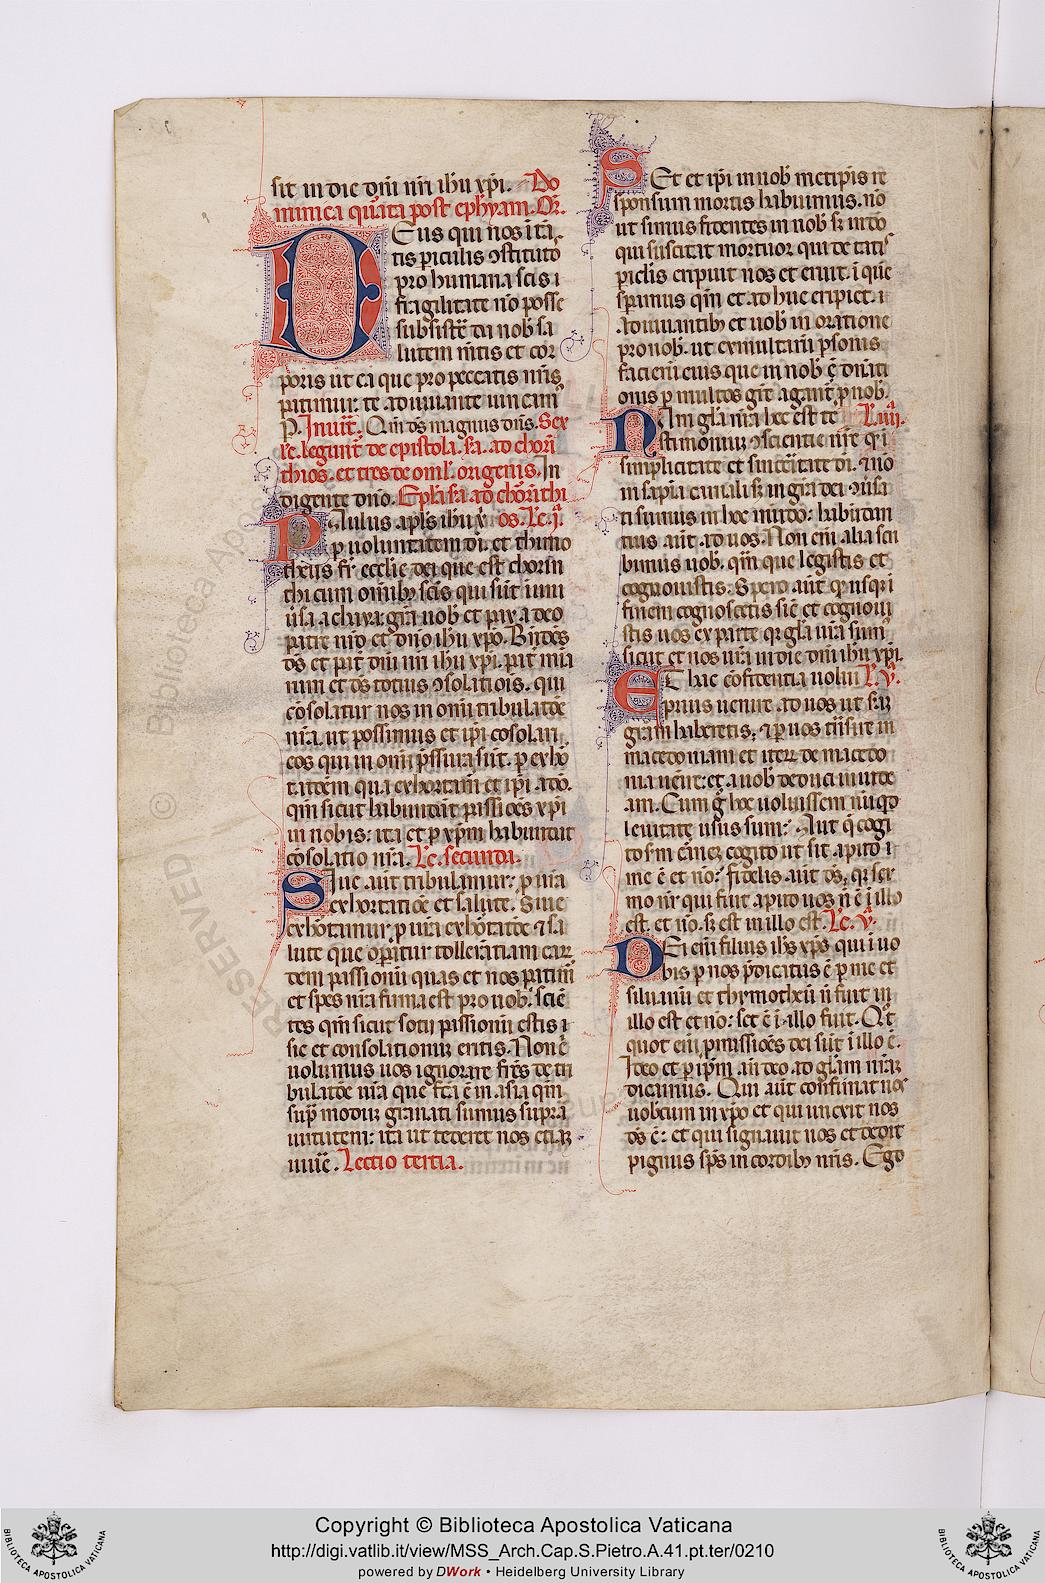 sit in die dñi nri ihu xpi. Do
minica quarta post ephyam. Or.
Deus qui nos i tā
tis piculis ꝯstitutos
pro humana scis i
fragilitate nō posse
subsistē da nob sa
lutem mētis et cor
poris ut ea que pro peccatis nris
patimur. te adiuuante uincam
P. Inuit. Qm ds magnus dns. Sex
lc. legunt de epistola. scda. ad chori
thios. et tres de oml. origenis. In
digente dno. Epla scda ad chorinthi
Paulus apls ihu x os. Lc. j.
p uoluntatem di. et thimo
theus fr ecclie dei que est chorin
thi cum omib scis qui sunt in uni
uisa achaya. gra uob et pax a deo
patre nro et dno ihu xpo. Bndcs
ds et pat dni nri ihu xpi. pat mia
rum et ds totius ꝯsolatiois. qui
cosolatur nos in omi tribulatoe
nra. ut possimus et ipi cosolari
eos qui in omi pssura sut. p exho
tatoem qua exhortam et ipi a do.
qm sicut habundat passioes xpi
in nobis: ita et p xpm habundat
cosolatio nra. Lc. secunda.
Siue aut tribulamur: p ura
exhortatioe et salute. Siue
exhotamur p ura exhotatoe et sa
lute que opatur tolleratiam ear
dem passionu quas et nos patim
et spes nra firma est pro uob: scie
tes qm sicut socii passionu estis i
sic et consolationu eritis. Non e
uolumus uos ignorare frēs de tri
bulatoe nra que fca e in asia qm
sup modu grauati sumus supra
uirtutem: ita ut tederet nos etiaz
uiuē. Lectio tertia.
Set et ipi in nob metipis re
sponsum mortis habuimus. nō
ut simus fidentes in nob sz in do
qui suscitat mortuos qui de tatis
piclis eripuit nos et eruit. i que
speramus qm et adhuc eripiet. i
adiuuantib et uob in oratione
pro nob. ut ex multarum psonis
facierum eius que in nob e donati
onis p multos gre agant p nob.
Nam gla nra hec est te L. iiij.
stimoniuz ꝯscientie nre q i
simplicitate et sinceritate di. et nō
in sapia carnali sz in gra dei ꝯuisa
ti sumus in hoc mundo: habundan
tius aut ad uos. Non em alia scri
bimus uob. qm que legistis et
cognouistis. Spero aut q usq i
finem cognoscetis sic et cognoui
stis nos ex parte qr gla ura sum
sicut et uos nra in die dni ihu xpi.
Et hac cofidentia uolui L. v.
prius uenire ad uos ut scdaz
gram haberetis. et p uos transire in
macedoniam et iteru de macedo
nia uenire: et a uob deduci in iude
am. Cum g hoc uoluissem nuqd
leuitate usus sum? Aut q cogi
to scdm carnez cogito ut sit apud
me e et no? Fidelis aut ds. qr ser
mo nr qui fuit apud uos n e i illo
est. et no. sz est in illo est. Lc. v.
Dei em filius ihs xps qui i uo
bis p nos pdicatus e p me et
siluanu et thymotheu n fuit in
illo est et no: set e i illo fuit. Qt
quot em pmissioes dei sut i illo e.
Ideo et p ipm am deo ad glam nraz
dicamus. Qui aut confirmat nos
uobcum in xpo et qui unexit nos
ds e: et qui signauit nos et dedit
pignus sps in cordib nris. Ego
Copyright © Biblioteca Apostolica Vaticana
http://digi.vatlib.it/view/MSS_Arch.Cap.S.Pietro.A.41.pt.ter/0210
powered by DWork • Heidelberg University Library
BIBLIOTECA APOSTOLICA VATICANA
BIBLIOTECA APOSTOLICA VATICANA